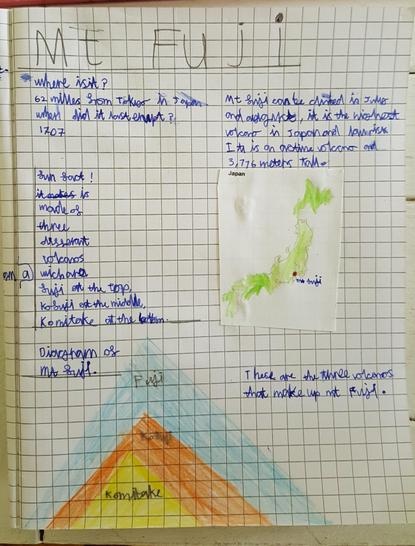 Mt Fuji
where is it?
62 milles from Tokyo in Japan
when did it last erupt?
1707
Mt Fuji can be climbed in July
and august, it is the
volcano in Japan and
It is an active volcano and
3,776 meters tall.
fun fact!
is
made of
three
volcanos
fuji at the top,
Kofuji at the middle,
Komitake at the bottom.
Japan
mt fuji
Diagram of
Mt Fuji.
Fuji
Kofuji
Komitake
These are the three volcanos
that make up mt Fuji.